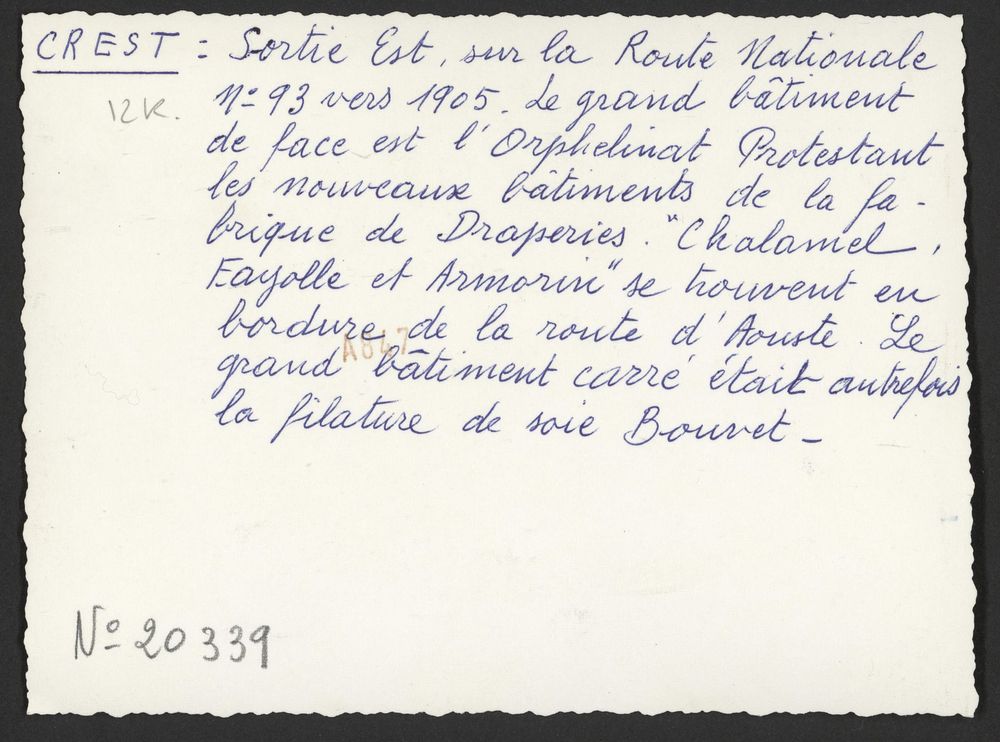 CREST = Sortie Est, sur la Route Nationale
12K.
Nº 93 vers 1905. Le grand bâtiment
de face est l'Orphelinat Protestant
les nouveaux bâtiments de la fa-
brique de Draperies. "Chalamel,
Fayolle et Armorin" se trouvent en
bordure de la route d'Aouste. Le
A847
grand bâtiment carré était autrefois
la filature de soie Bouvet -
Nº 20 339